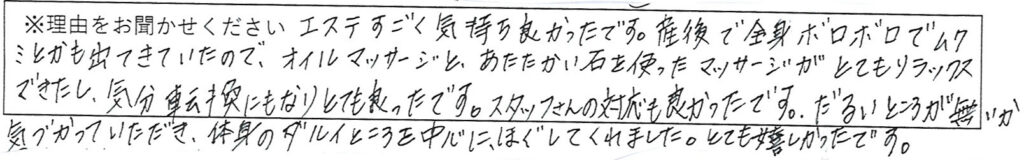 ※理由をお聞かせください エステすごく気持ち良かったです。産後で全身ボロボロでムク
ミとかも出てきていたので、オイルマッサージと、あたたかい石を使ったマッサージがとてもリラックス
できたし、気分転換にもなりとても良ったです。スタッフさんの対応も良かったです。だるいところが無いか
気づかっていただき、体身のダルイところを中心に、ほぐしてくれました。とても嬉しかったです。